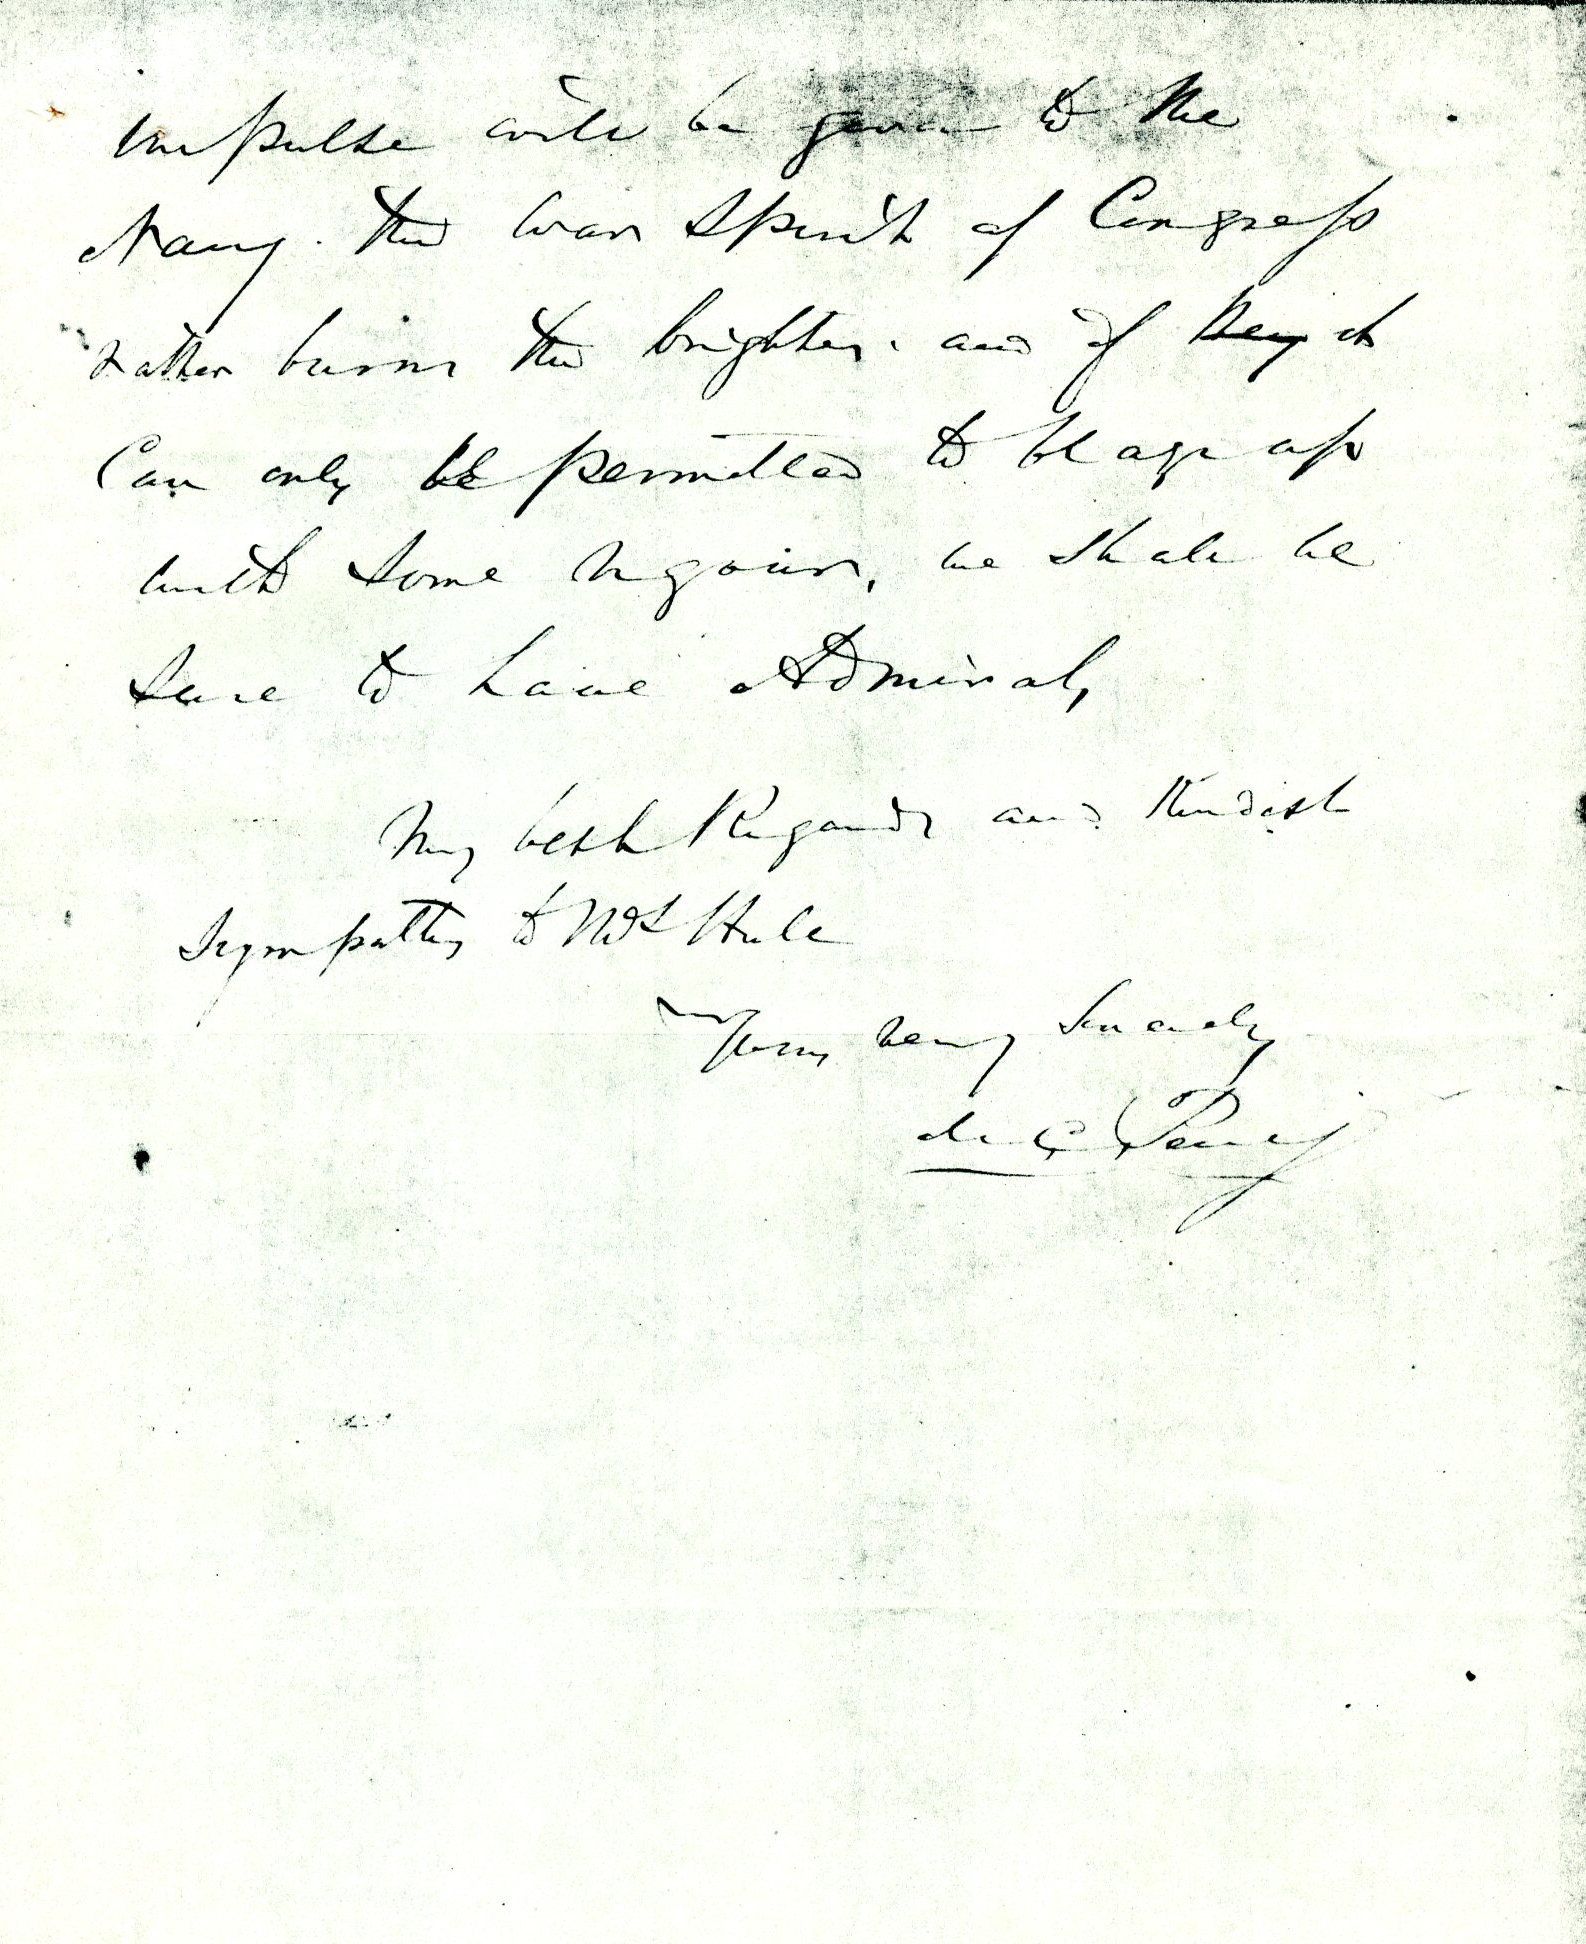 impulse will be given to the
Navy. The war spirit of Congress
rather burns the brighter. and if they it
Can only be permitted to blaze up
with some vigour, we shall be
sure to have Admirals
My best Regards and Kindest
Sympathy to Mrs Hull
Yours very Sincerely
M C Perry